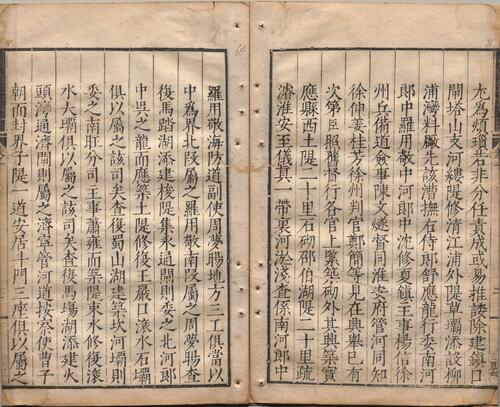 尤為煩瑣若非分任責成或易推諉除建鎮口
閘塔山支河縷隄修清江浦外隄草壩添設柳
浦灣料廠先該漕撫右侍郎舒應龍行委南河
郎中羅用敬中河郎中沈修夏鎮主事楊信徐
州兵備道僉事陳文燧督同淮安府管河同知
徐伸姜桂芳徐州判官鄭簡等見在興舉已有
次第臣照舊督行各官上緊築砌外其興築寶
應縣西土隄二十里石砌邵伯湖隄二十里疏
濬淮安至儀真一帶裏河淤淺查係南河郎中
羅用敬海防道副使周夢暘地方三工俱當以
中為界北段屬之羅用敬南段屬之周夢暘查
復馬踏湖添建梭隄集永通閘則委之北河郎
中吳之龍而應築土隄修復王嚴口滾水石壩
俱以屬之該司矣查復蜀山湖建築坎河壩則
委之南旺分司主事蕭雍而築隄束水修復滾
水大壩俱以屬之該司矣查復馬塲湖添建火
頭灣通濟閘則屬之濟寧管河道按察使曹子
朝而封界子隄一道安居斗門三座俱以屬之